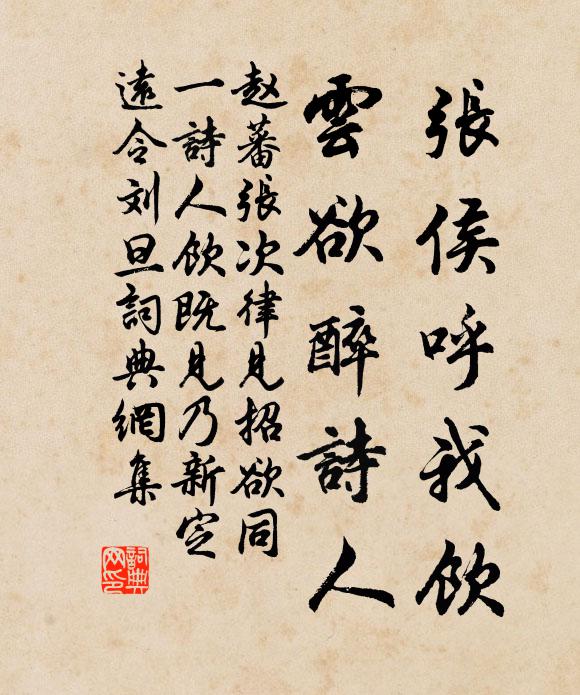 張侯呼我飲
雲欲醉詩人
赵蕃張次律見招欲同
一詩人飲既見乃新定
遠令刘旦詞典網集
詞典
网印